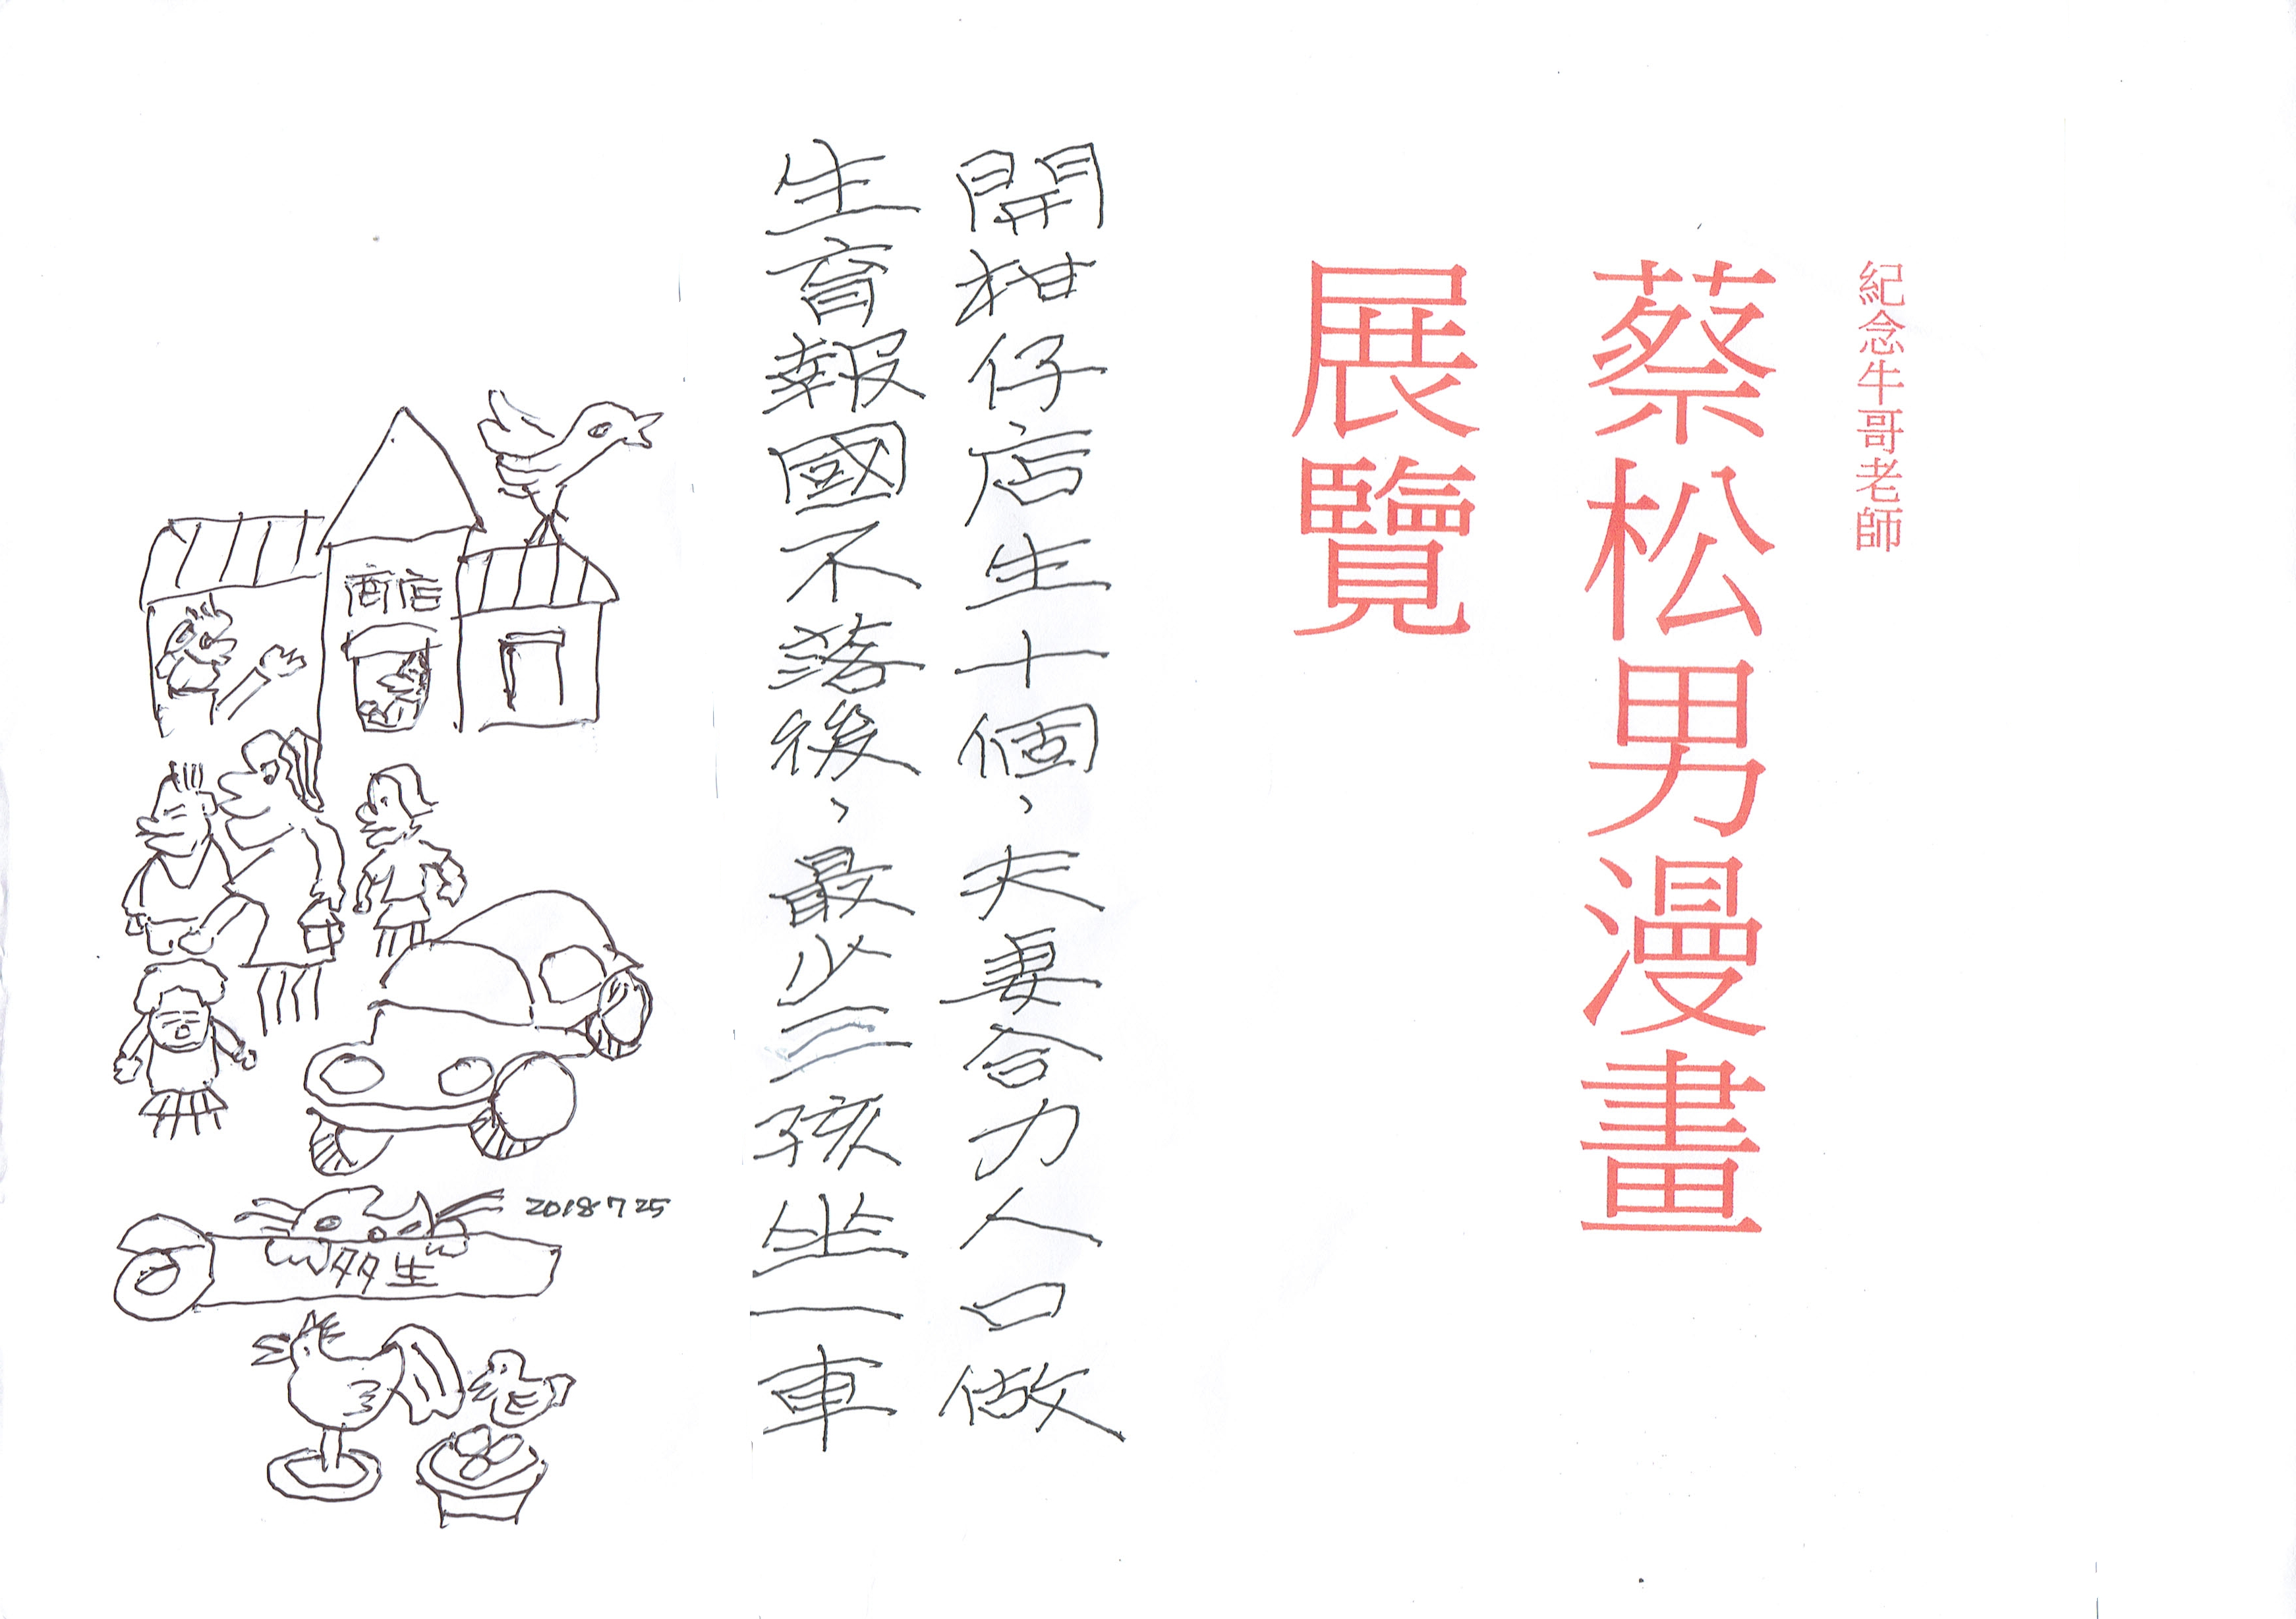 紀念牛哥老師
蔡松男漫畫
展覽
開柑仔店生十個，夫妻合力人口做
生育報國不落後，最少三孩坐一車
商店
2018 7 25
多生